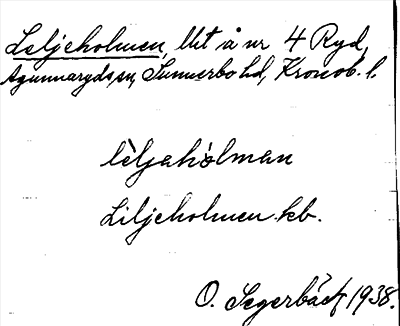 Liljeholmen, llt å nr 4 Ryd,
Agunnaryds sn, Sunnerbo hd, Kronob. l.
lìljahòlman
Liljeholmen kb.
O. Segerbäck 1938.